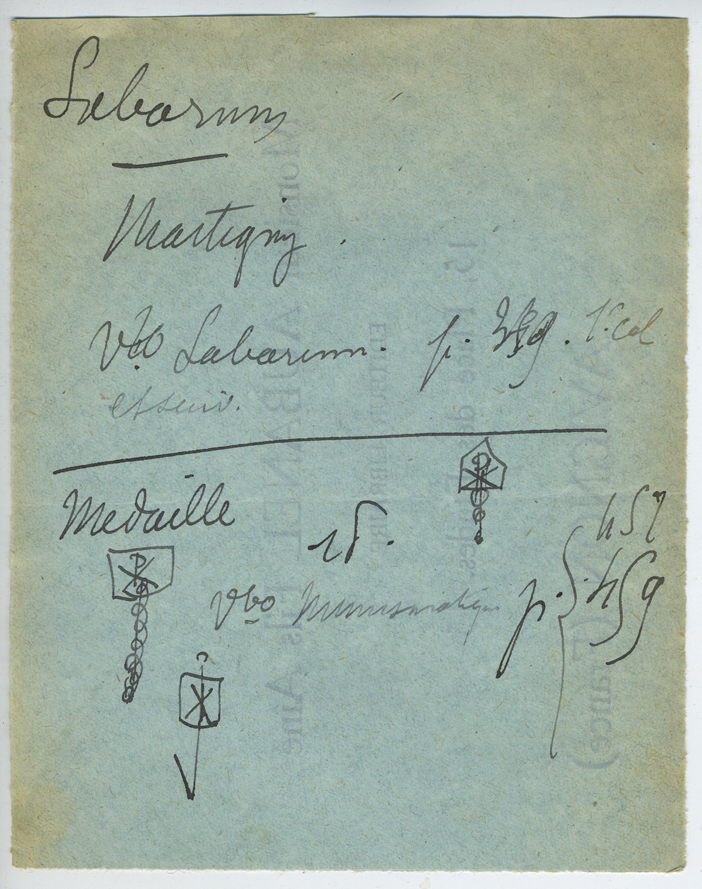 Labarum
Martigny.
Vbo Labarum. p. 1e Col
et suiv.
Medaille
Vbo Numismatique p. 457
459